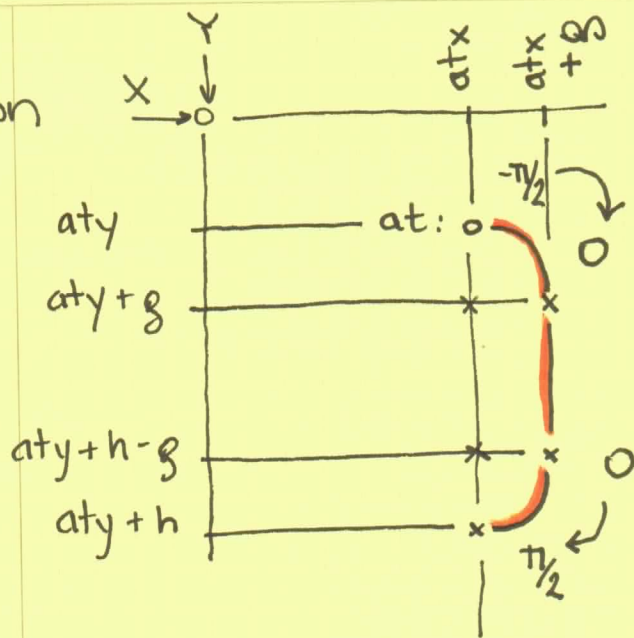 on
X
Y
atx
atx
+ g
-π/2
0
aty
at:
aty + g
aty + h - g
0
aty + h
π/2